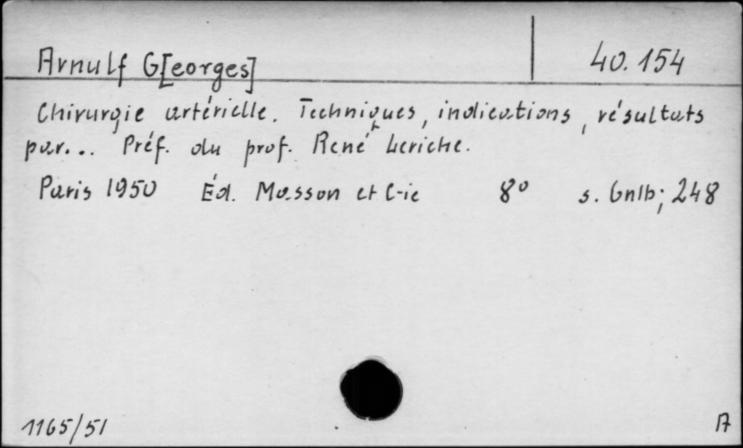 Arnulf G[eorges]
40.154
Chirurgie artérielle. Techniques, indications, résultats
par... Préf. du prof. René Leriche.
Paris 1950 Éd. Masson et C-ie 8° s. 6nlb; 248
1165/51
A